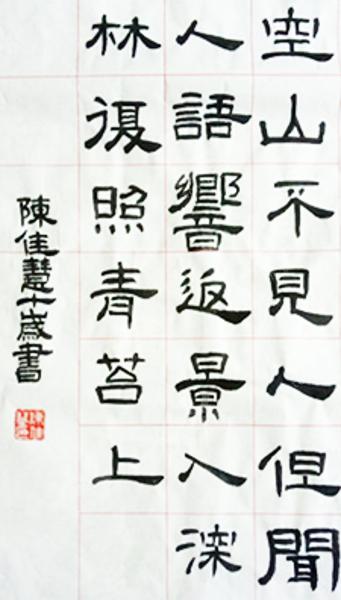 空山不見人但聞
人語響返景入深
林復照青苔上
陳佳慧十歲書